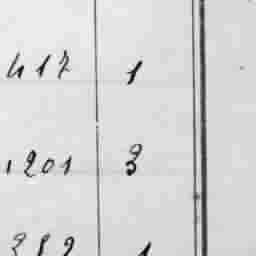 417 1
1201 3
382 1